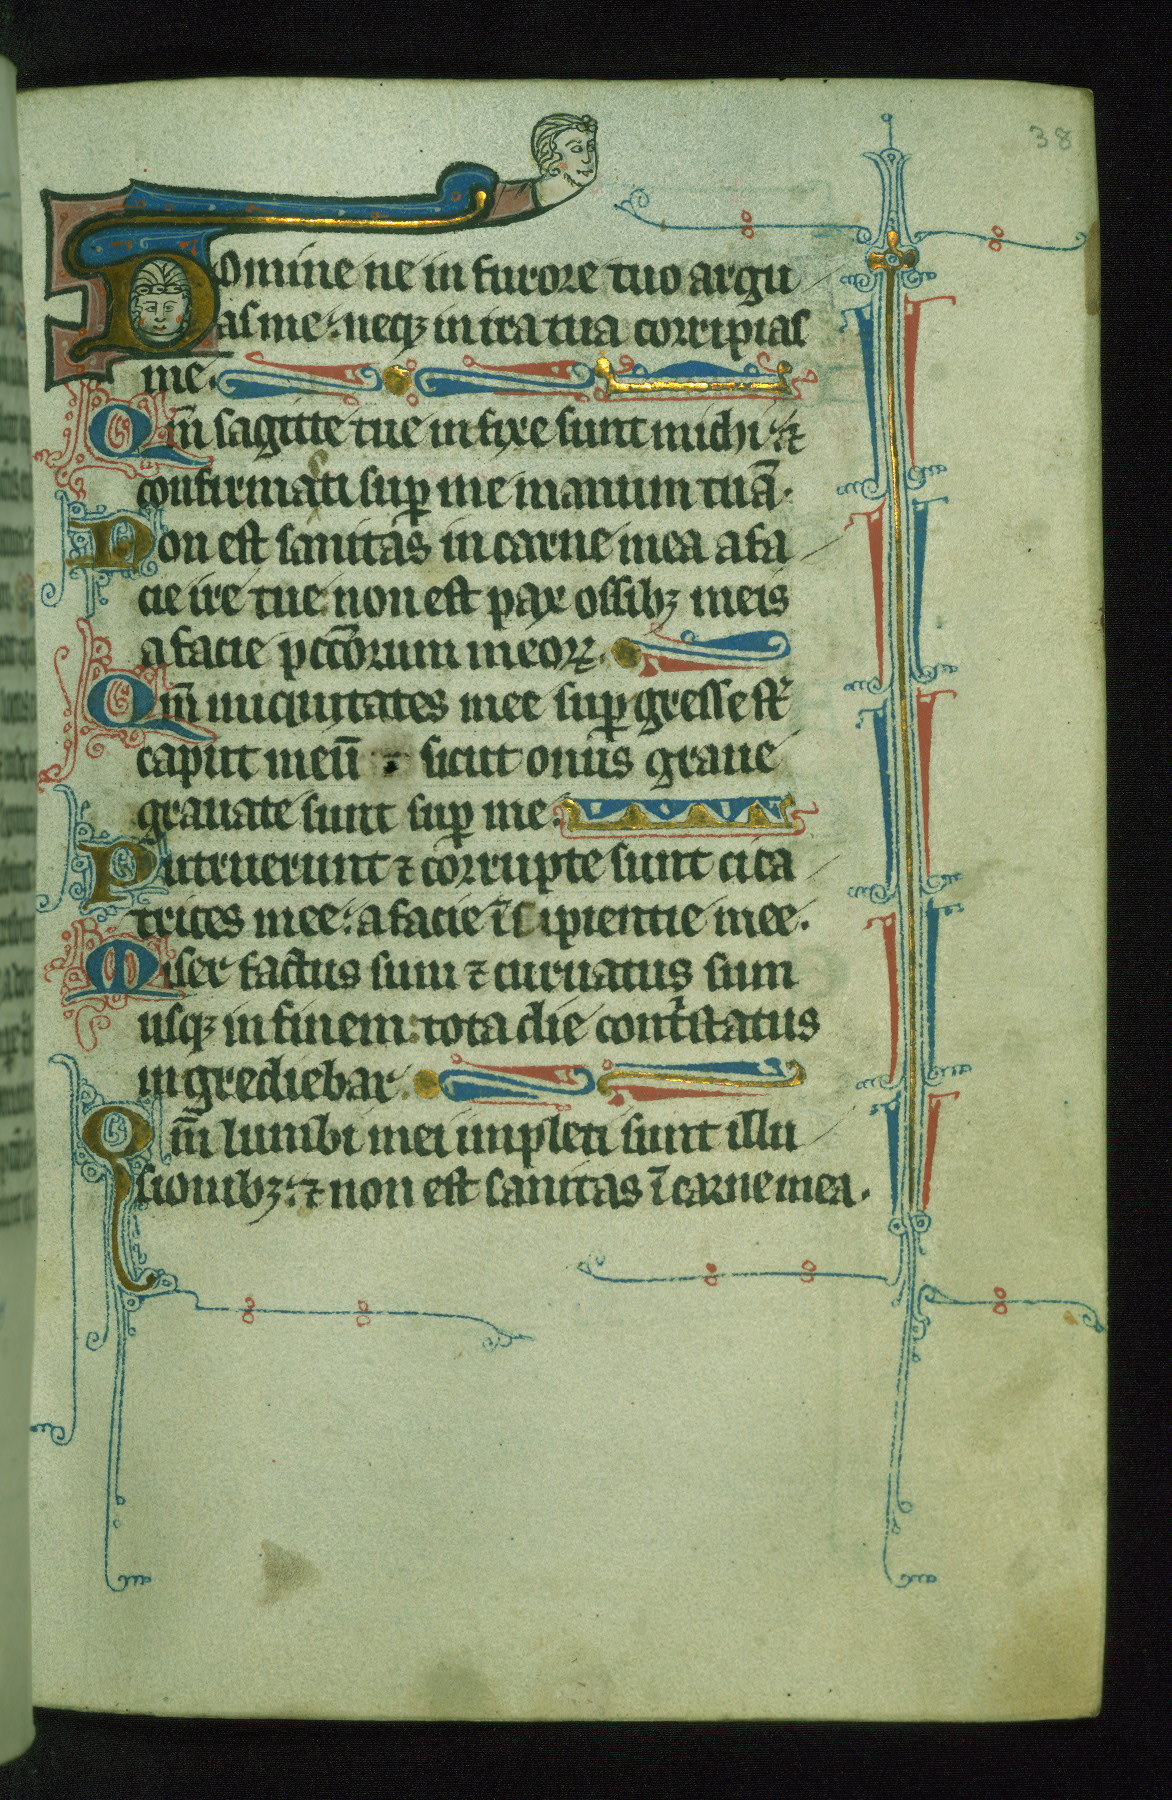 38
Domine ne in furore tuo argu
as me: neqꝫ in ira tua corripias
me.
Qm̄ sagitte tue infixe sunt michi: ⁊
confirmasti suꝑ me manum tuā.
Non est sanitas in carne mea a fa
cie ire tue non est pax ossibꝫ meis
a facie pctōrum meoꝝ.
Qm̄ iniquitates mee suꝑgresse st̄
caput meū : sicut onus graue
grauate sunt suꝑ me.
Putruerunt ⁊ corrupte sunt cica
trices mee: a facie īsipientie mee.
Miser factus sum ⁊ curuatus sum
usqꝫ in finem: tota die contⁱstatus
ingrediebar.
Qm̄ lumbi mei impleti sunt illu
sionibꝫ: ⁊ non est sanitas ī carne mea.